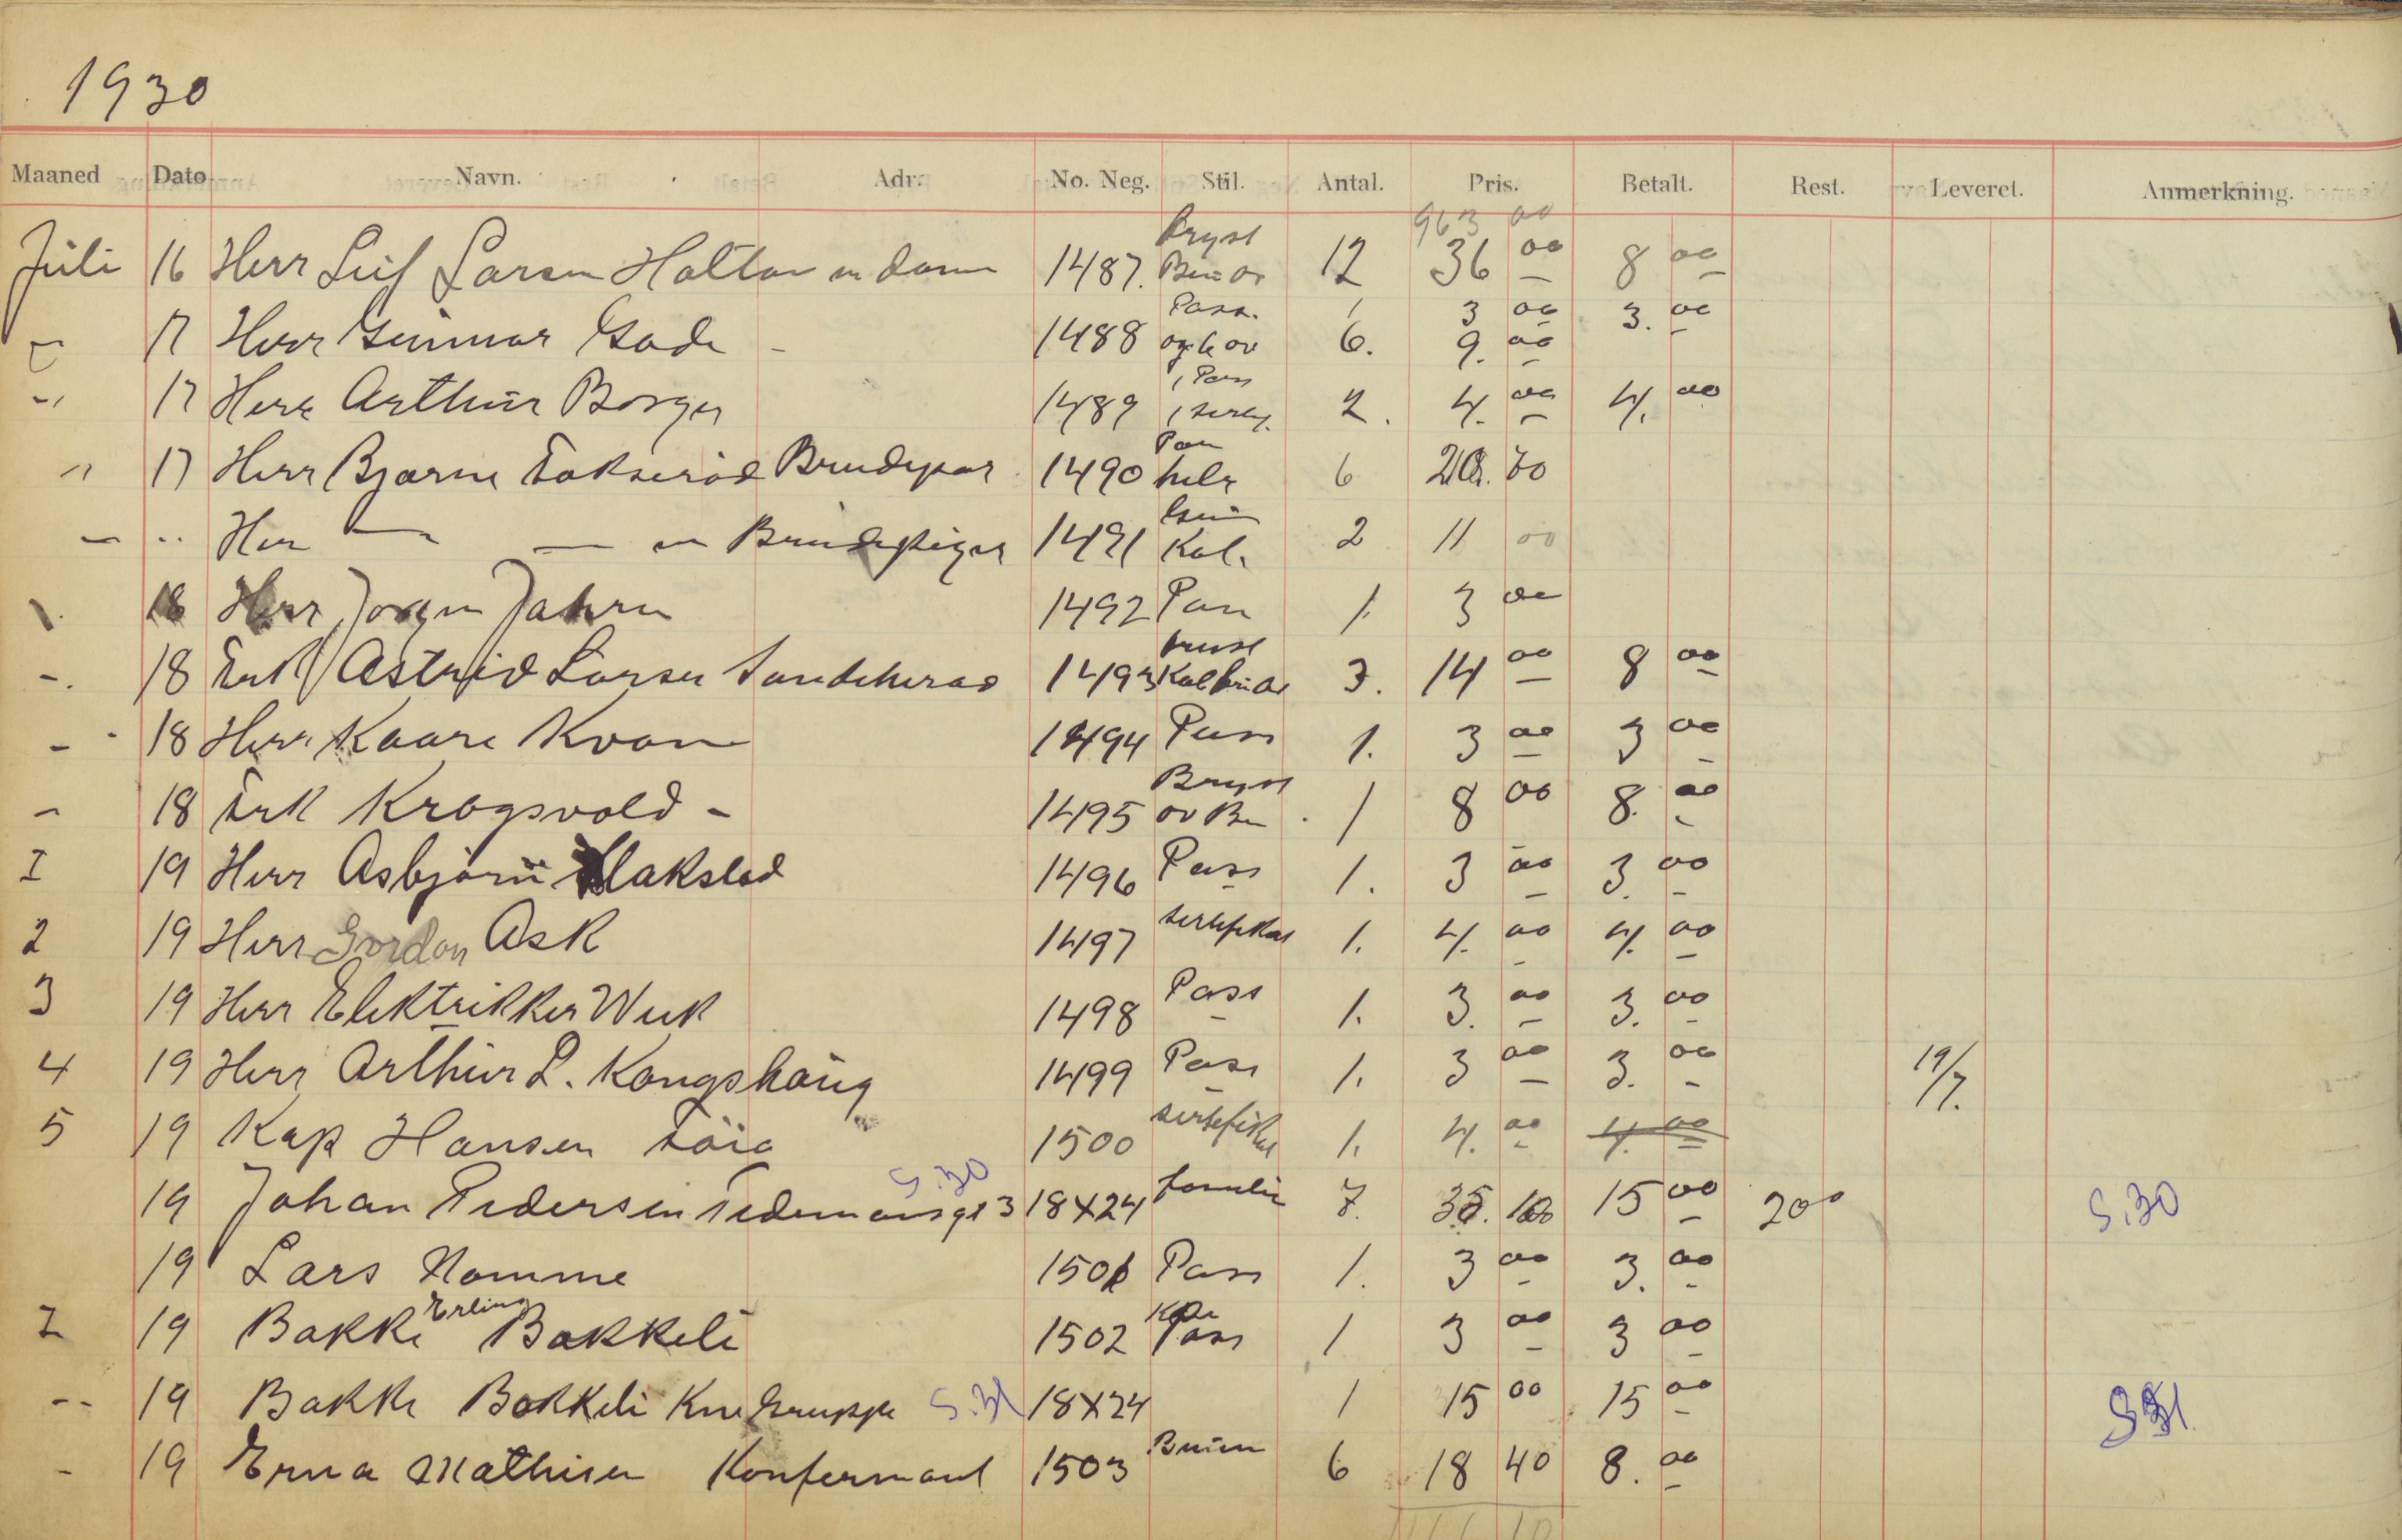 1930
Maaned Dato Navn. Adr. No. Neg. Stil. Antal. Pris. Betalt. Rest. Leveret. Anmerkning.
963 00
Juli 16 Herr Leif Larsen 1487. Bryst 12 36 00 8 00
17 Herr Gunnar Gade - 1488 Pass. 1 3 00 3. 00
6. 9. 00
-"- 17 Herr Arthur Borger 1489 1 Pass 2. 4. 00 4. 00
" 17 Herr Bjarne Brudepar 1490 hele 6
Herr — — Brudepiger 1491 Kab. 2 11 00
18 Herr Jørgen Jahren 1492 Pass 1. 3 00
-. 18 Frk Astrid Larsen Sandeherad 1493 3. 14 00 8 00
- 18 Herr Kaare Kvam 1494 Pass 1. 3 00 3 00
- 18 Frk Krogsvold - 1495 Bryst 1 8 00 8. 00
I 19 Herr Asbjørn Hakstad 1496 Pass 1. 3 00 3. 00
2 19 Herr Gordon Ask 1497 sertifikat 1. 4. 00 4. 00
3 19 Herr Elektrikker Wiik 1498 Pass 1. 3. 00 3. 00
4 19 Herr Arthur L. Kongshaug 1499 Pass 1. 3 00 3. 00 19/7.
5 19 Kap Hansen 1500 sertefikat 1. 4. 00 4. 00
S.30
19 Johan Pedersen Tidemansgt 3 18X24 familie 7. 15 00 20 0 S.30
19 Lars Nomme 1501 Pass 1. 3 00 3. 00
Erling
I 19 Bakke Bakkeli 1502 Pass 1 3 00 3 00
-- 19 Bakke Bakkeli Kne Gruppe S.31 18X24 1 15 00 15 00
- 19 Erna Mathisen Konfermant 1503 6 18 40 8. 00